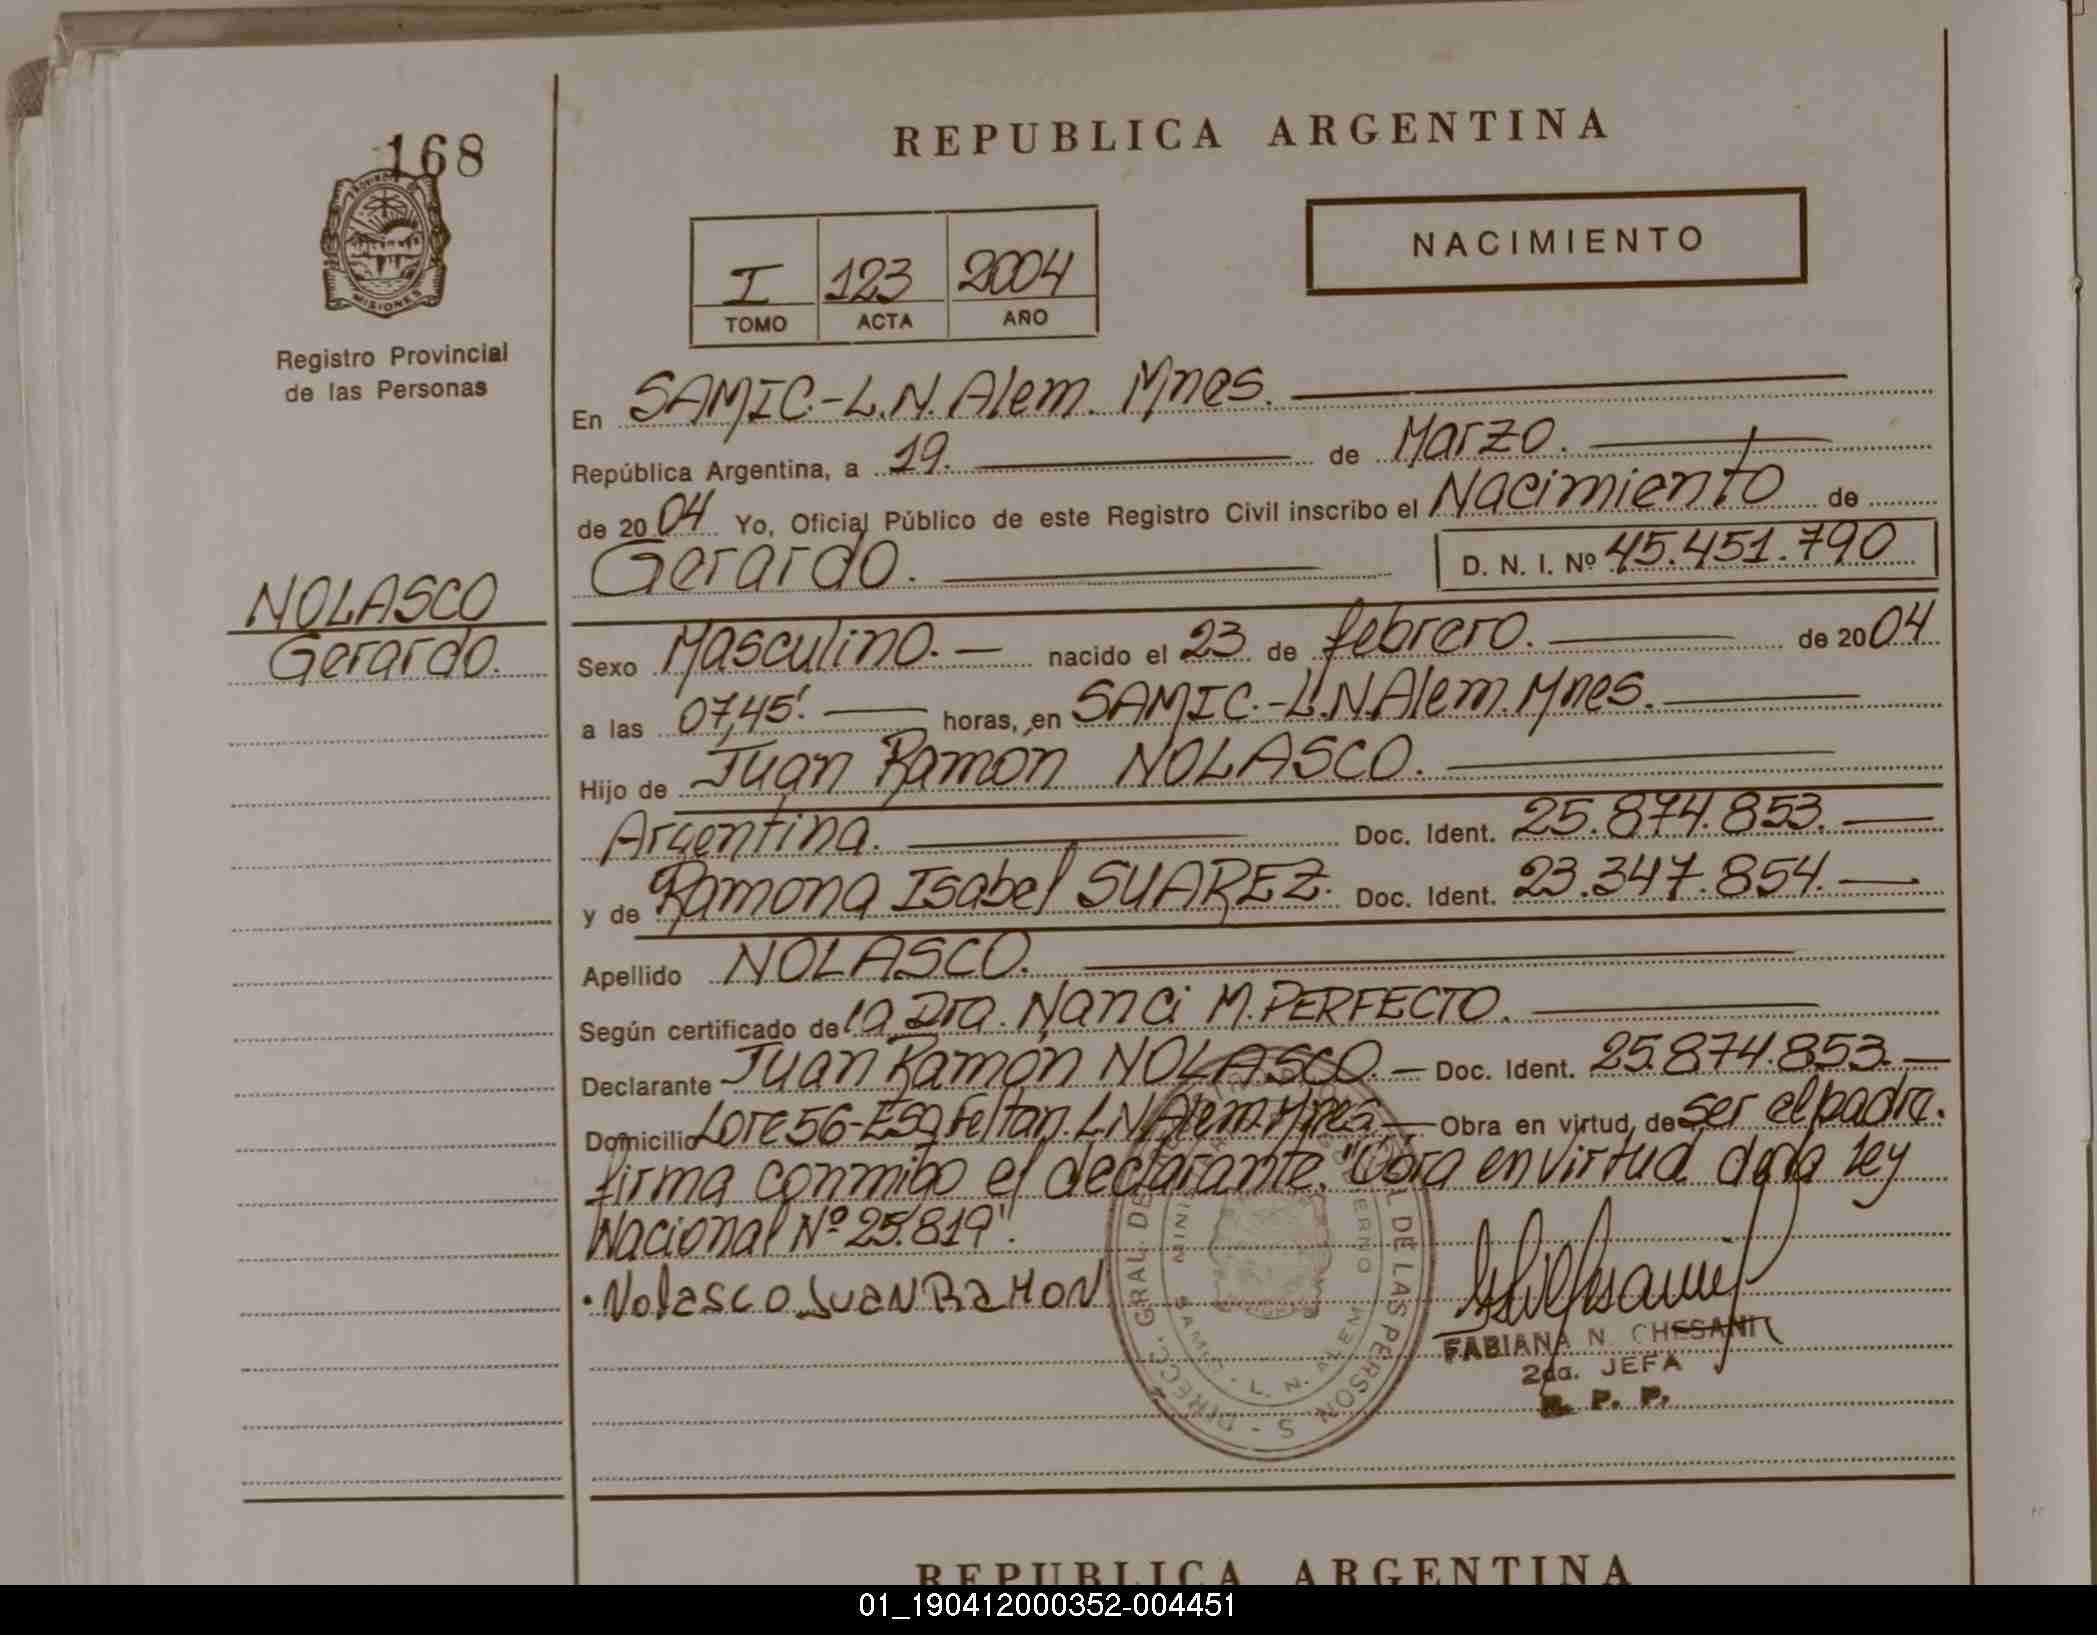 168
PROVINCIA DE
MISIONES
Registro Provincial
de las Personas
REPUBLICA ARGENTINA
I 123 2004
TOMO ACTA AÑO
NACIMIENTO
En SAMIC.-L.N.Alem. Mnes.
República Argentina, a 19. de Marzo.
de 2004 Yo, Oficial Público de este Registro Civil inscribo el Nacimiento de
Gerardo. D. N. I. Nº 45.451.790
NOLASCO
Gerardo.
Sexo Masculino.- nacido el 23 de febrero. de 2004
a las 07,45'. horas, en SAMIC.-L.N.Alem.Mnes.
Hijo de Juan Ramon NOLASCO.
Argentina. Doc. Ident. 25.874.853.
y de Ramona Isabel SUAREZ. Doc. Ident. 23.347.854.
Apellido NOLASCO.
Según certificado de la Dra. Nanci M. PERFECTO.
Declarante Juan Ramón NOLASCO.- Doc. Ident. 25.874.853.
Domicilio Lote 56-Esq Feltan. L N Alem.Mnes.- Obra en virtud de ser el padre.
firma conmigo el declarante. "Obra en virtud de la Ley
Nacional Nº 25.819".
Nolasco JUAN RAMON
DIRECC. GRAL. DE L DE LAS PERSONAS
MINI ERNO
SAMIC - L. N. ALEM
FABIANA N. CHESANI
2da. JEFA
R. P. P.
REPUBLICA ARGENTINA
01_190412000352-004451